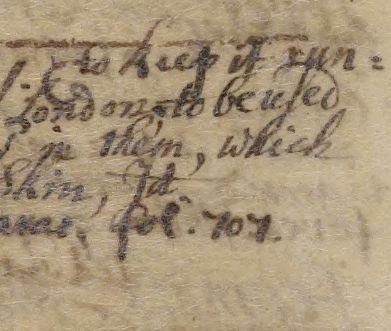 to keep it run=
London, to be used
in them, which
Skin, Id
fol. 707.